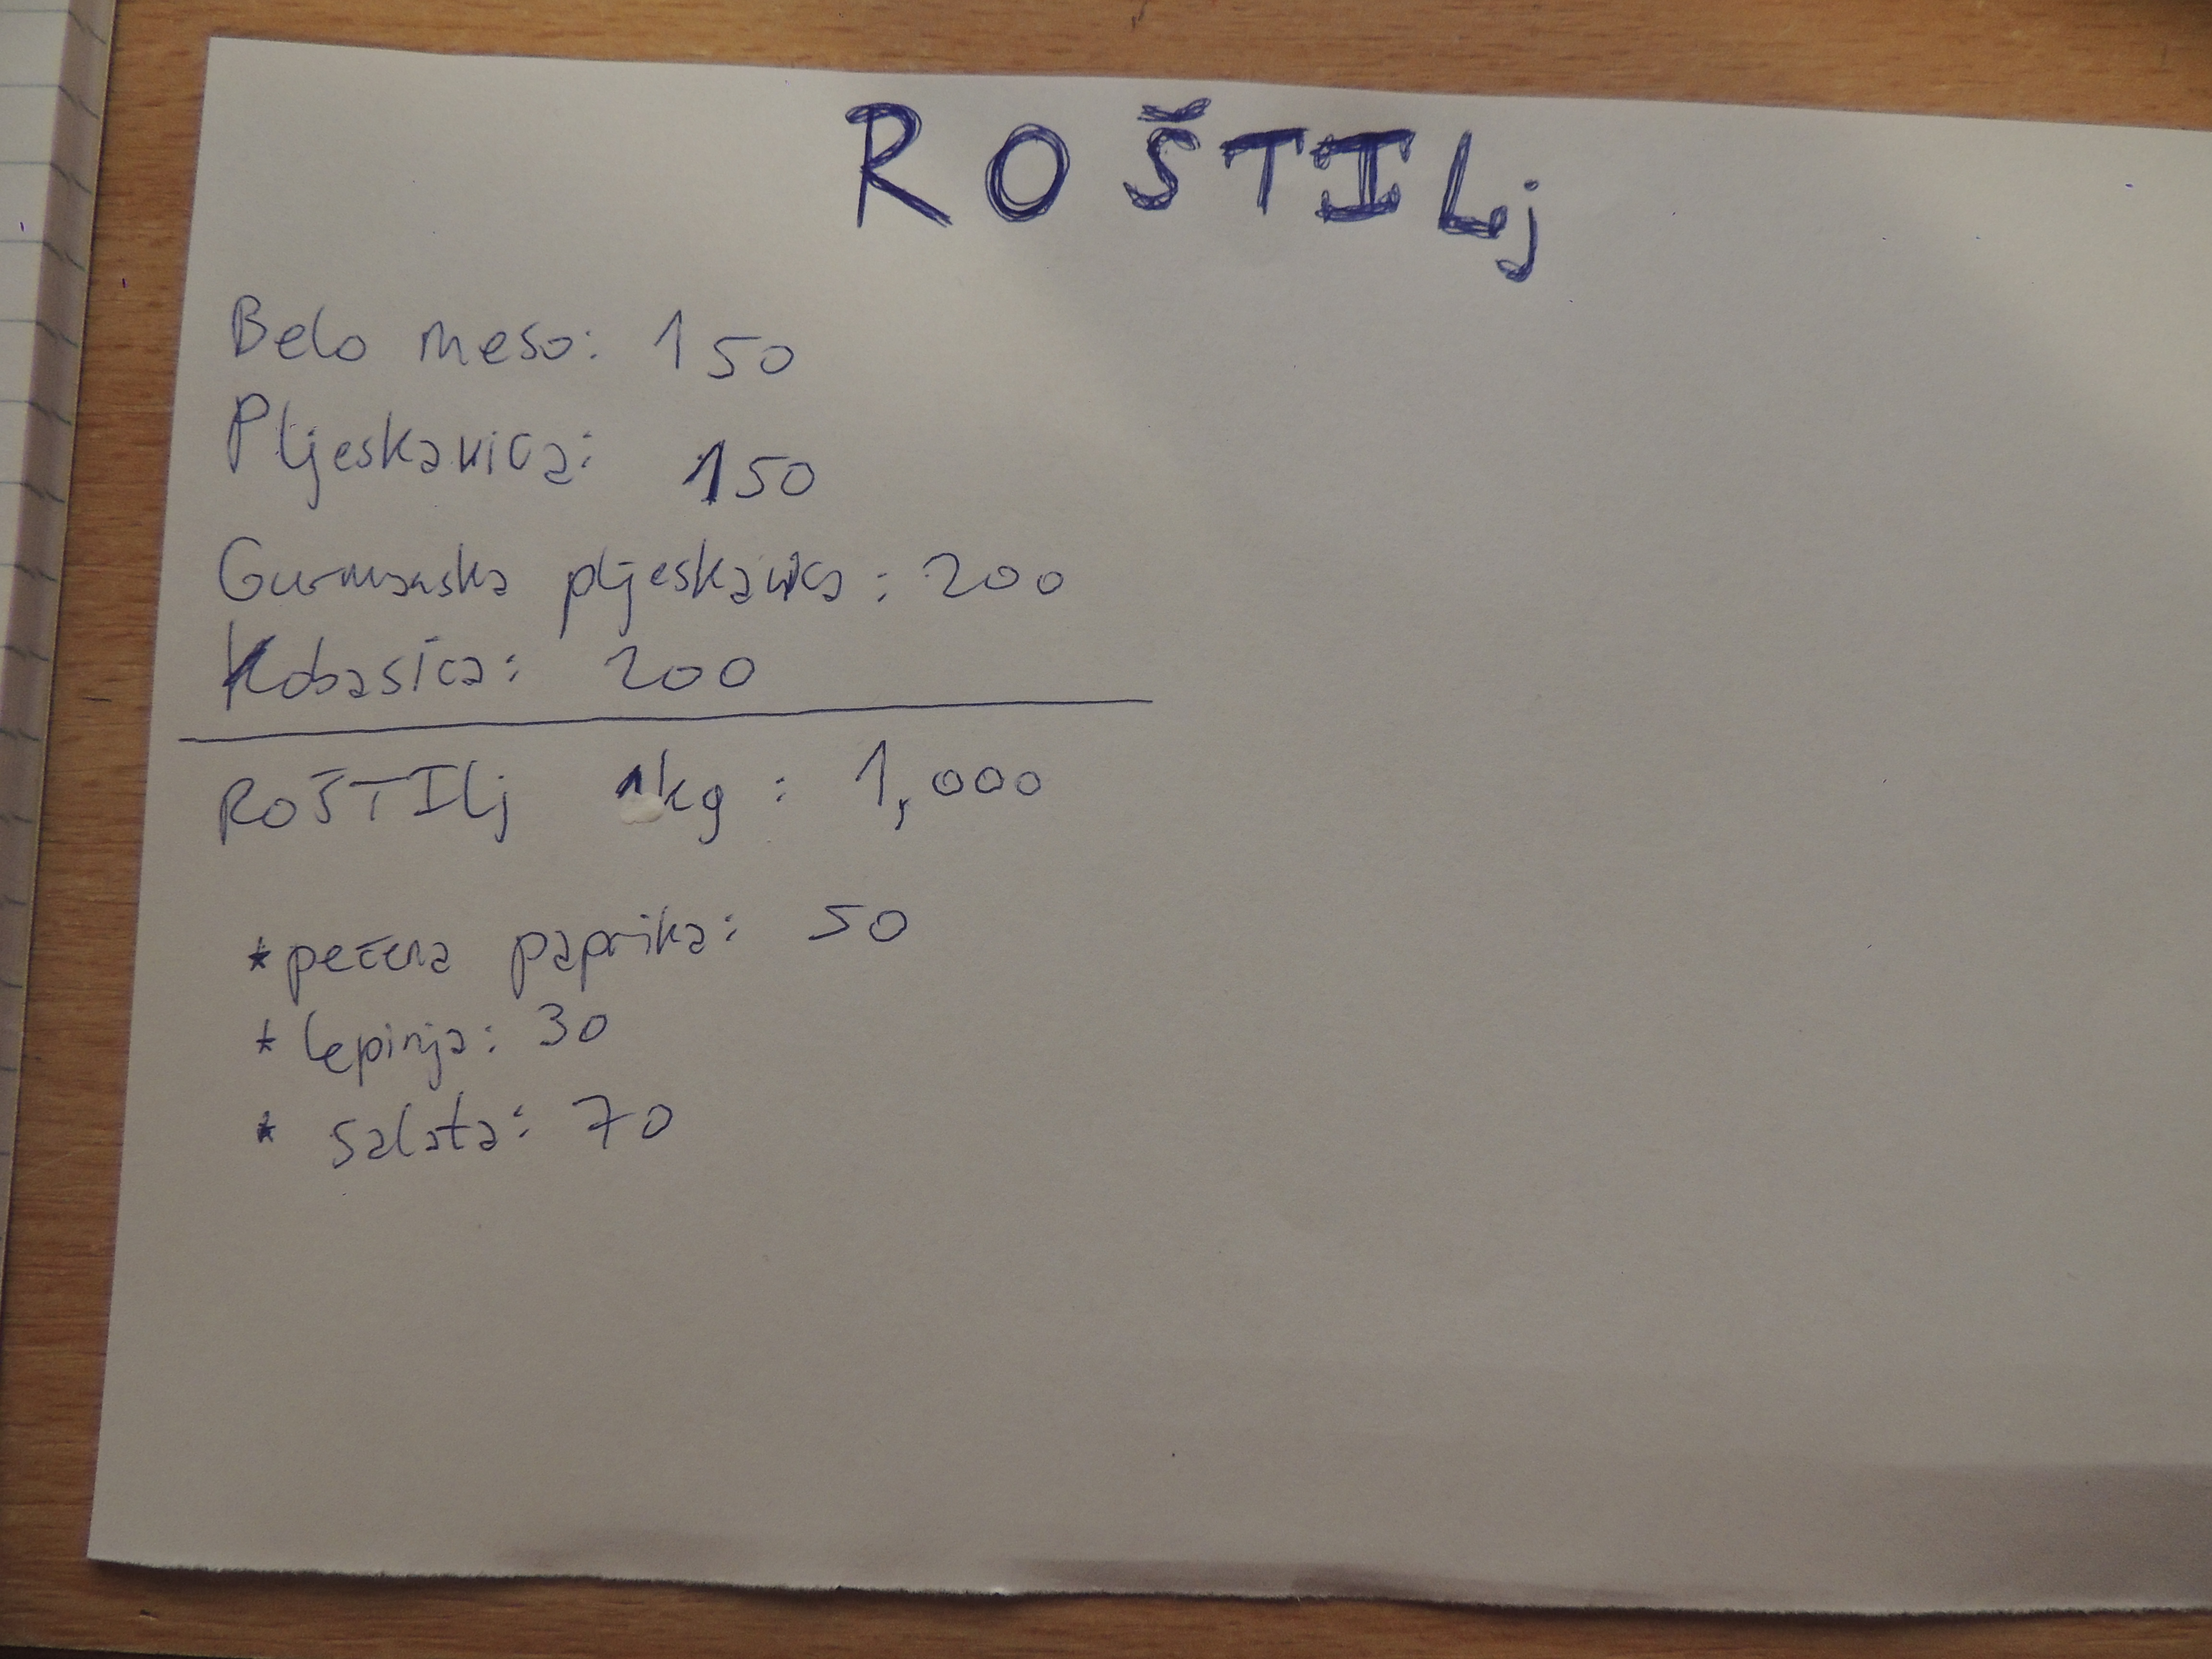 ROŠTILj
Belo meso: 150
Pljeskavica: 150
Gurmanska pljeskavica: 200
Kobasica: 200
ROŠTILj 1kg: 1,000
*pečena paprika: 50
* lepinja: 30
* salata: 70